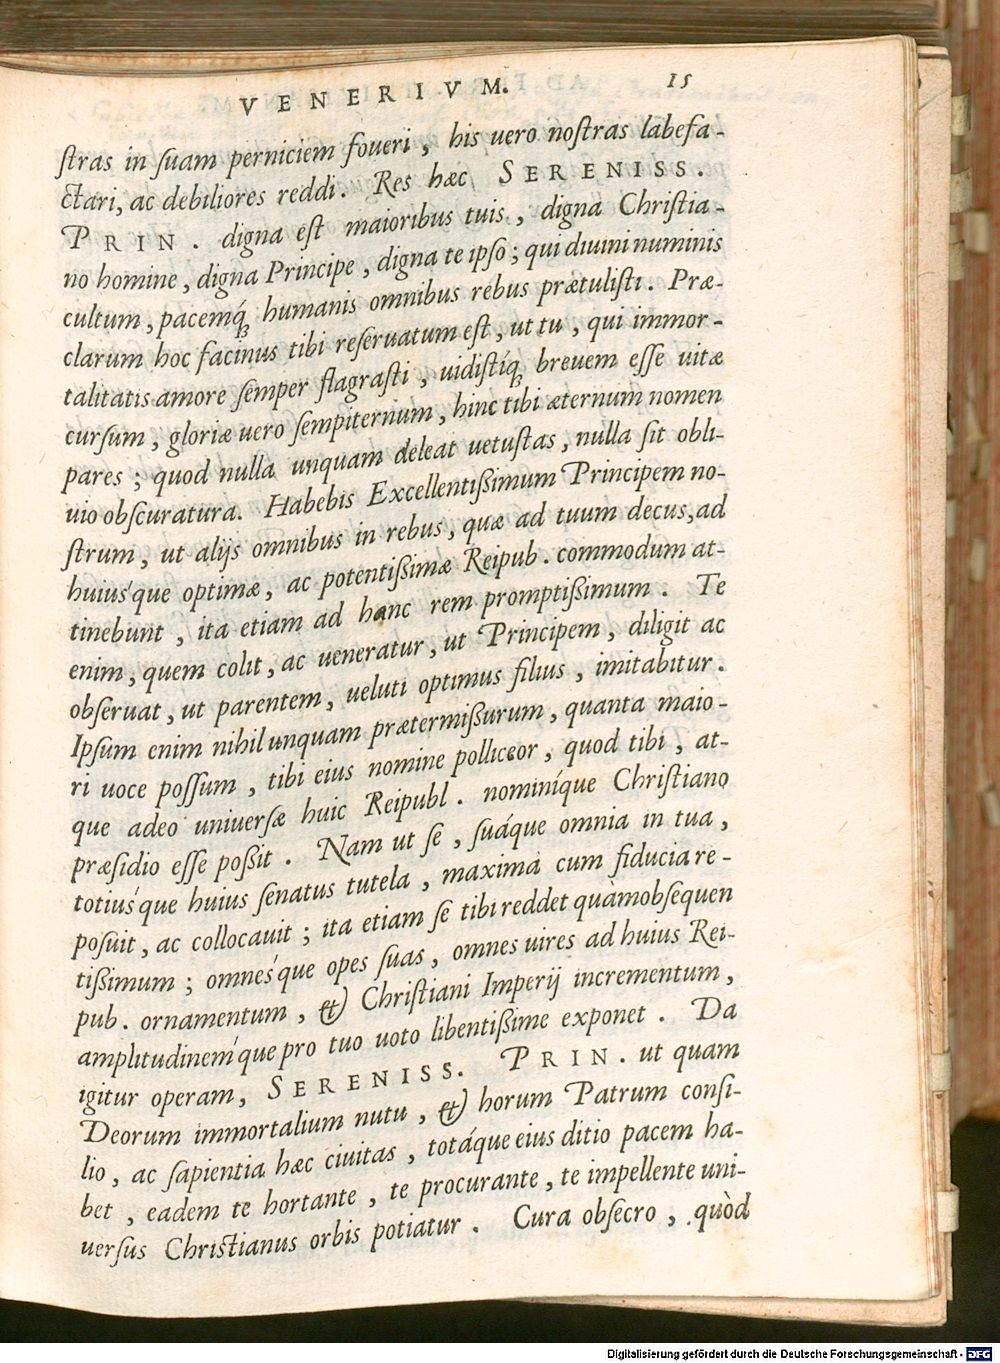 VENERIVM. 15
ſtras in ſuam perniciem foueri, his uero noſtras labefa-
ctari, ac debiliores reddi. Res hæc SERENISS.
PRIN. digna eſt maioribus tuis, digna Chriſtia-
no homine, digna Principe, digna te ipſo; qui diuini numinis
cultum, pacemq́; humanis omnibus rebus prætuliſti. Præ-
clarum hoc facinus tibi reſeruatum eſt, ut tu, qui immor-
talitatis amore ſemper flagraſti, uidiſtíq; breuem eſſe uitæ
curſum, gloriæ uero ſempiternum, hinc tibi æternum nomen
pares; quod nulla unquam deleat uetuſtas, nulla ſit obli-
uio obſcuratura. Habebis Excellentißimum Principem no-
ſtrum, ut alijs omnibus in rebus, quæ ad tuum decus, ad
huiuśque optimæ, ac potentißimæ Reipub. commodum at-
tinebunt, ita etiam ad hanc rem promptißimum. Te
enim, quem colit, ac ueneratur, ut Principem, diligit ac
obſeruat, ut parentem, ueluti optimus filius, imitabitur.
Ipſum enim nihil unquam prætermißurum, quanta maio-
ri uoce poſſum, tibi eius nomine polliceor, quod tibi, at-
que adeo uniuerſæ huic Reipubl. nominíque Chriſtiano
præſidio eſſe poßit. Nam ut ſe, ſuáque omnia in tua,
totiuśque huius ſenatus tutela, maxima cum fiducia re-
poſuit, ac collocauit; ita etiam ſe tibi reddet quàm obſequen
tißimum; omneśque opes ſuas, omnes uires ad huius Rei-
pub. ornamentum, & Chriſtiani Imperij incrementum,
amplitudineḿque pro tuo uoto libentißime exponet. Da
igitur operam, SERENISS. PRIN. ut quam
Deorum immortalium nutu, & horum Patrum conſi-
lio, ac ſapientia hæc ciuitas, totáque eius ditio pacem ha-
bet, eadem te hortante, te procurante, te impellente uni-
uerſus Chriſtianus orbis potiatur. Cura obſecro, quòd
Digitalisierung gefördert durch die Deutsche Forschungsgemeinschaft - DFG